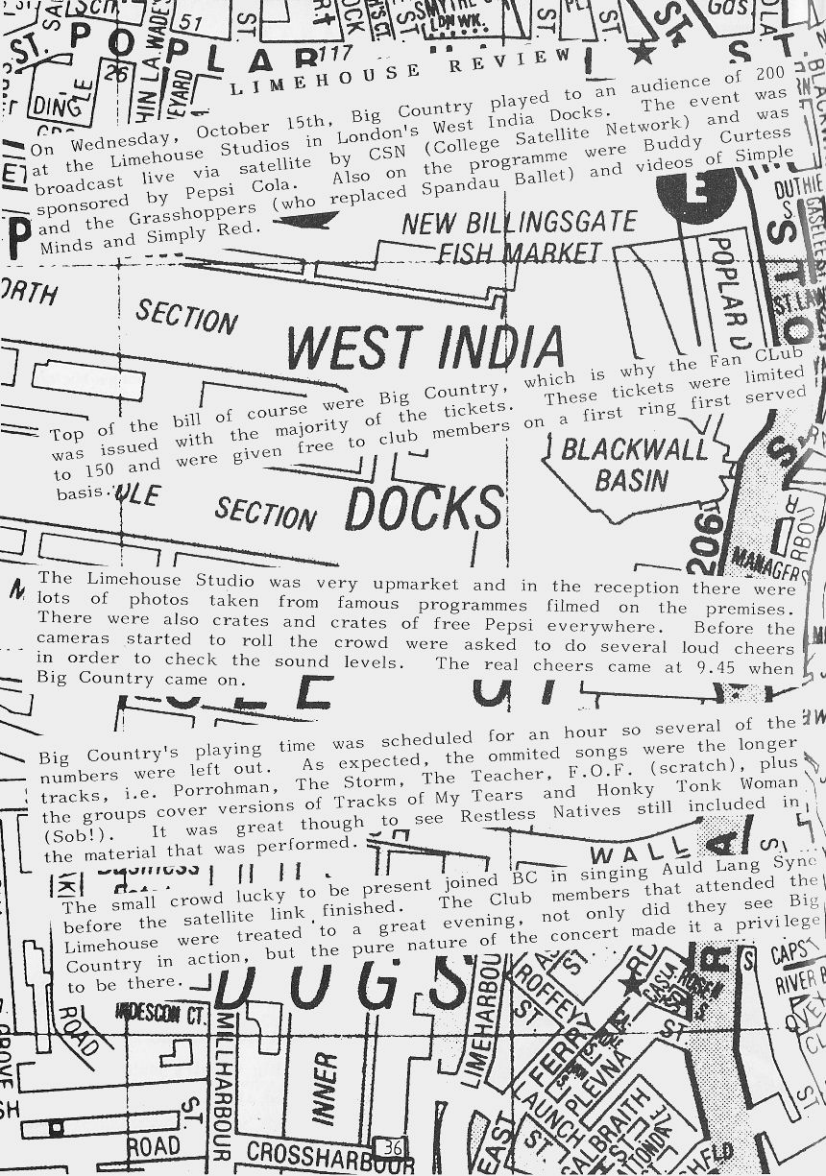 51
ST.
POPLAR
117
LDN WK.
ST.
ST.
ST.
Gas
26
DINGLE
LIMEHOUSE REVIEW
On Wednesday, October 15th, Big Country played to an audience of 200
at the Limehouse Studios in London's West India Docks. The event was
broadcast live via satellite by CSN (College Satellite Network) and was
sponsored by Pepsi Cola. Also on the programme were Buddy Curtess
and the Grasshoppers (who replaced Spandau Ballet) and videos of Simple
Minds and Simply Red.
E
DUTHIE
NEW BILLINGSGATE
FISH MARKET
POPLAR
SECTION
WEST INDIA
Top of the bill of course were Big Country, which is why the Fan CLub
was issued with the majority of the tickets. These tickets were limited
to 150 and were given free to club members on a first ring first served
basis.
BLACKWALL
BASIN
SECTION
DOCKS
206
MANAGER
The Limehouse Studio was very upmarket and in the reception there were
lots of photos taken from famous programmes filmed on the premises.
There were also crates and crates of free Pepsi everywhere. Before the
cameras started to roll the crowd were asked to do several loud cheers
in order to check the sound levels. The real cheers came at 9.45 when
Big Country came on.
Big Country's playing time was scheduled for an hour so several of the
numbers were left out. As expected, the ommited songs were the longer
tracks, i.e. Porrohman, The Storm, The Teacher, F.O.F. (scratch), plus
the groups cover versions of Tracks of My Tears and Honky Tonk Woman
(Sob!). It was great though to see Restless Natives still included in
the material that was performed.
WALL
The small crowd lucky to be present joined BC in singing Auld Lang Sync
before the satellite link finished. The Club members that attended the
Limehouse were treated to a great evening, not only did they see Big
Country in action, but the pure nature of the concert made it a privilege
to be there.
DOGS
CAPS
RIVER B
ROAD
MILLHARBOUR
INNER
LIMEHARBOUR
ROFFEY
ST
FERRY
PLEVNA
ST
LAUNCH
ST.
GALBRAITH
ST
ROAD
ST.
CROSSHARBOUR
36
EAST